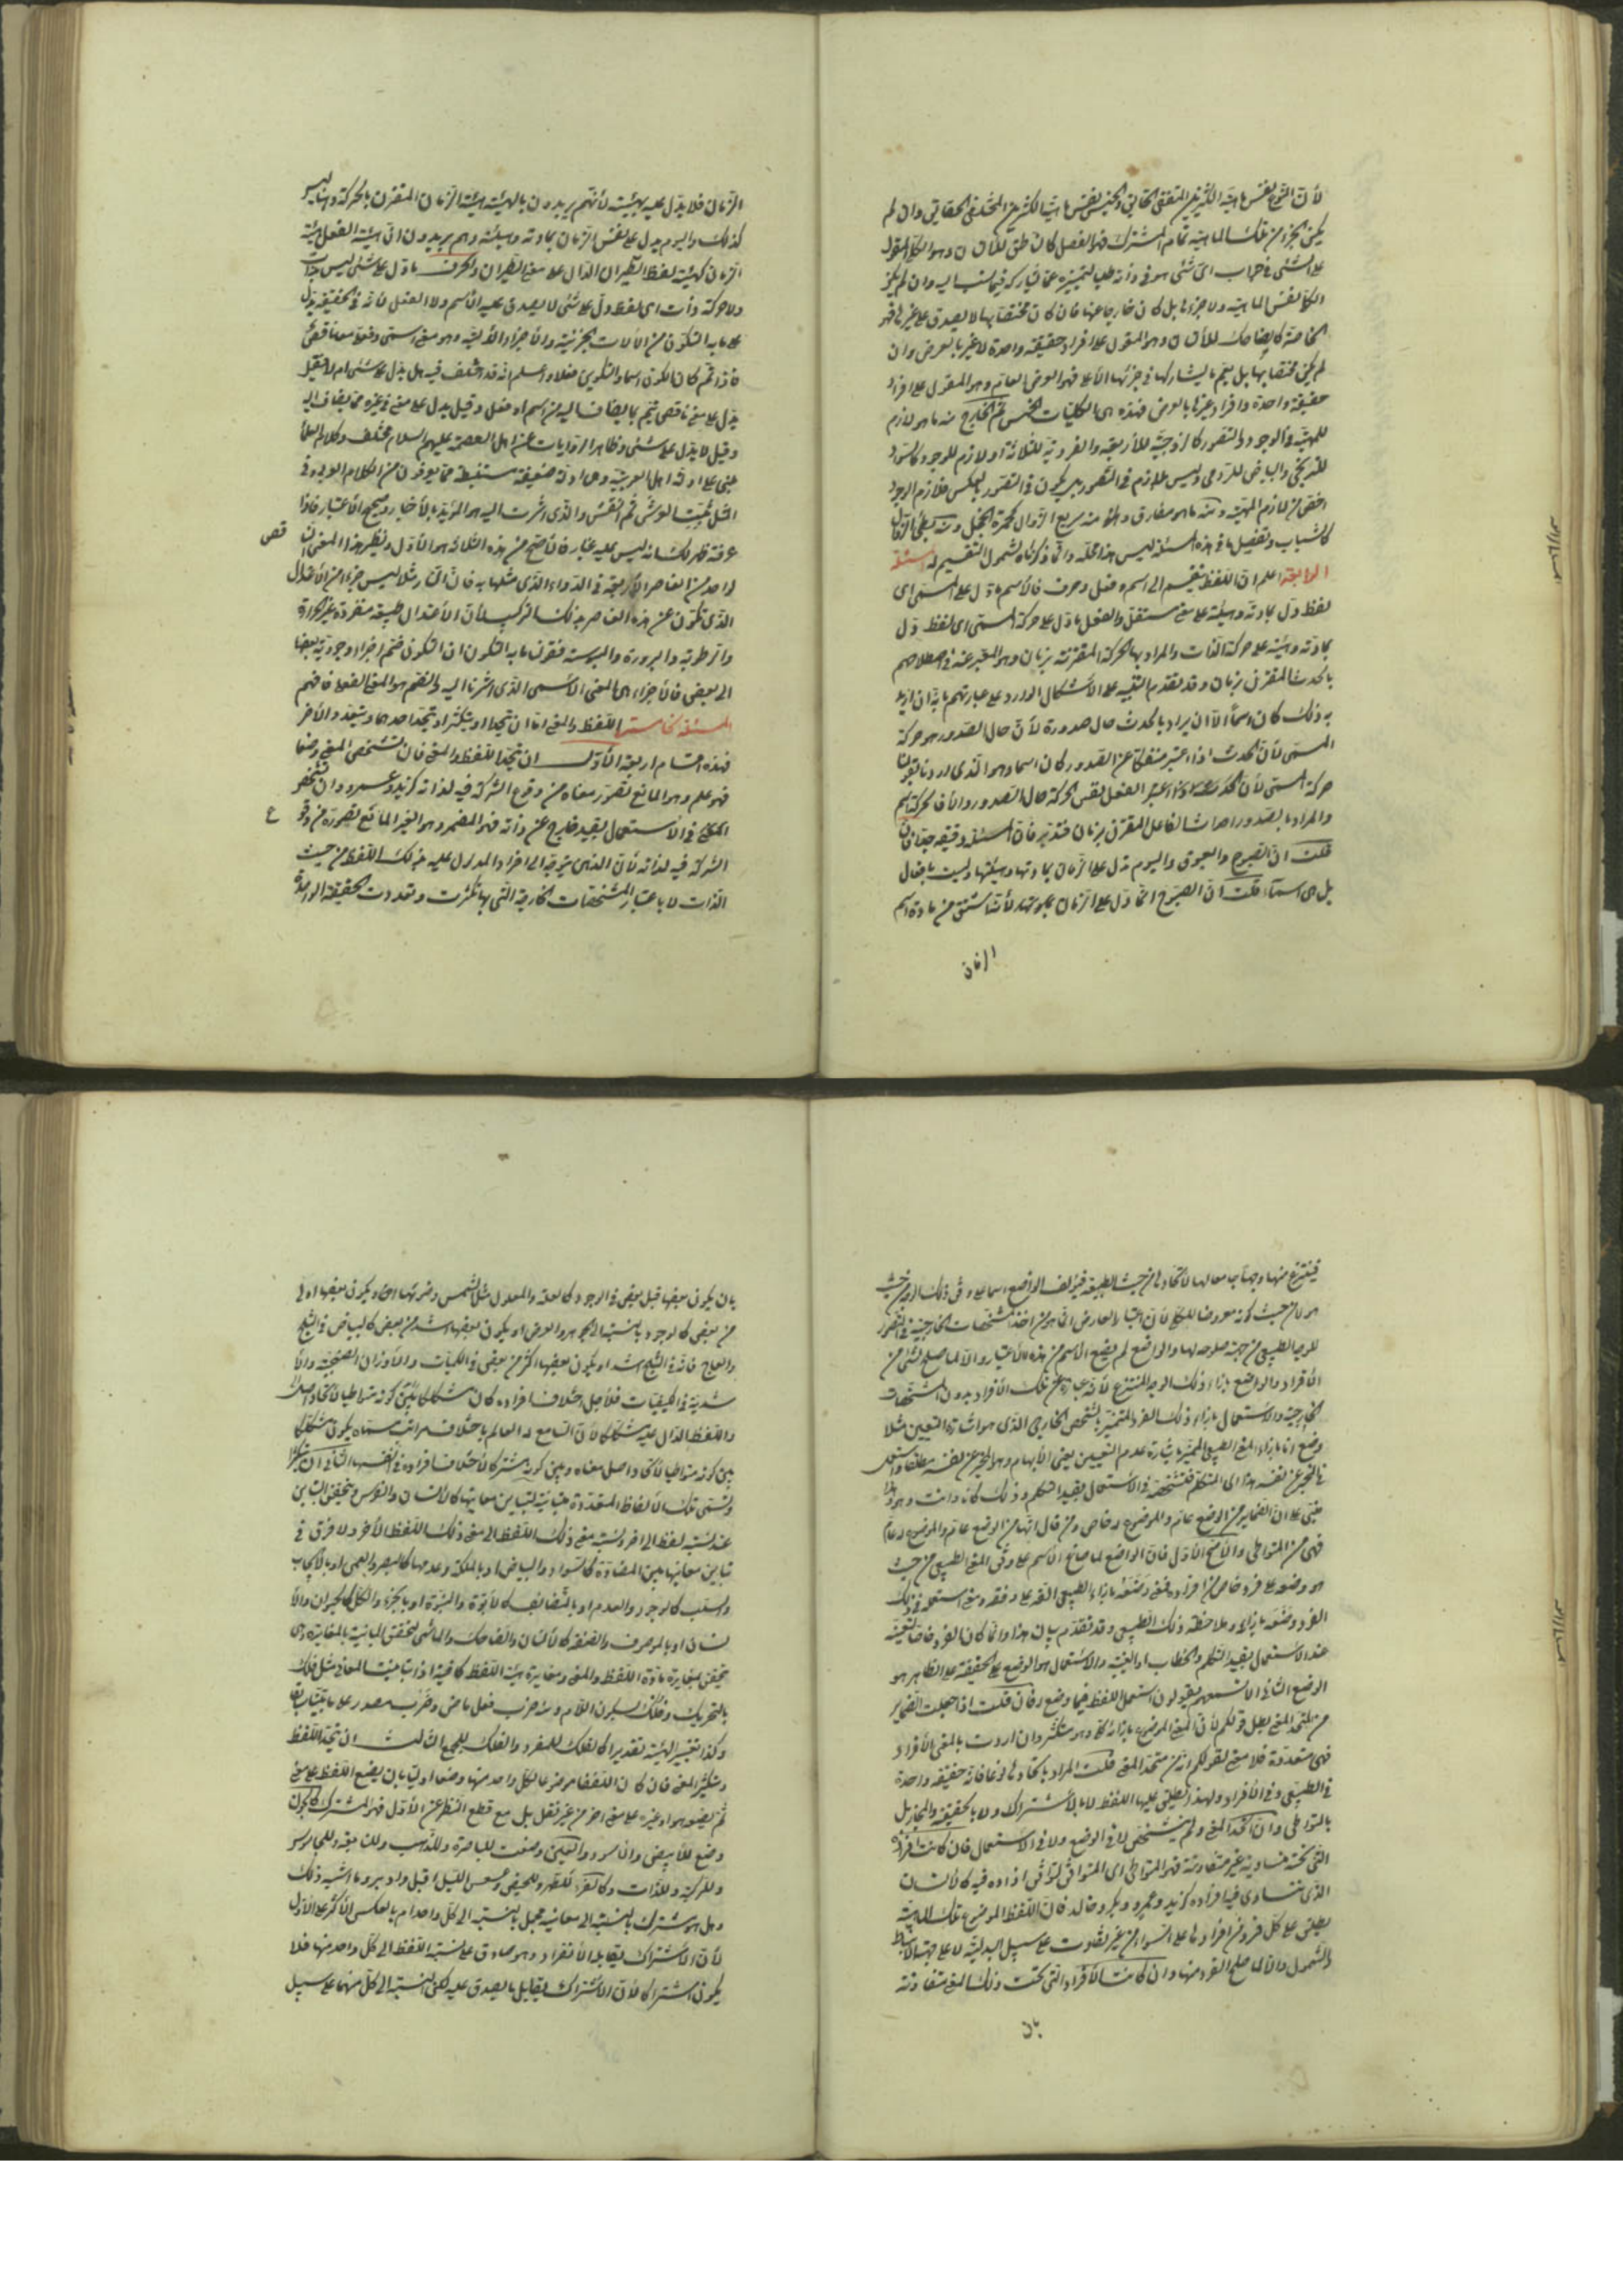 لأن النوع نفس ماهية الكثيرين المتفقي الحقايق والجنس نفس ماهية الكثيرين المختلفي الحقايق وان لم
يكن الجزء من تلك الماهية تمام المشترك فهو الفصل كالناطق للانسان وهو الكلي المقول
على الشئ في جواب اي شئ هو في ذاته طلبا لتميزه عما يشاركه فيما نسب اليه وان لم يكن
الكلي نفس الماهية ولا جزءها بل كان خارجا عنها فان كان مختصا بها لا يصدق على غيرها فهو
الخاصة كالضاحك للانسان وهو المقول على افراد حقيقة واحدة لا غير بالعرض وان
لم يكن مختصا بها بل يعم ما يشاركها في جزئها الأعلى فهو العرض العام وهو المقول على افراد
حقيقة واحدة وافراد غيرها بالعرض فهذه هي الكليات الخمس ثم الخارج منه ما هو لازم
للمهية في الوجود والتصور كالزوجية للأربعة والفردية للثلاثة او لازم للوجود كالسواد
للزنجي والبياض للرومي وليس بلازم في التصور بل يكون في التصور بالعكس فلازم الوجود
اخص من لازم المهية ومنه ما هو مفارق والمفارق منه سريع الزوال كحمرة الخجل ومنه بطئ الزوال
كالشباب وتفصيل ما في هذه المسئلة ليس هذا محله وانما ذكرناه لشمول التقسيم له المسئلة
الرابعة اعلم ان اللفظ ينقسم الى اسم وفعل وحرف فالاسم ما دل على المسمى اي
لفظ دل بمادته وهيئته على معنى مستقل والفعل ما دل على حركة المسمى اي لفظ دل
بمادته وهيئته على حركة الذات والمراد بها الحركة المقترنة بزمان وهو المعبر عنه في اصطلاحهم
بالحدث المقترن بزمان وقد تقدم التنبيه على الاشكال الوارد على عبارتهم بانه ان اريد
به ذلك كان اسماً الا ان يراد بالحدث حال صدوره لأن حال الصدور هو حركة
المسمى لأن الحدث اذا اعتبر منفكا عن الصدور كان اسما وهو الذي اردنا بقولنا
حركة المسمى لأن الحدث اذا اعتبر الفعل نفس الحركة حال الصدور والا فالحركة اسم
والمراد بالصدور احداث الفاعل المقترن بزمان فتدبر فان المسئلة دقيقة جدا فان
قلت ان الصبوح والغبوق واليوم تدل على الزمان بمادتها وهيئتها وليست بافعال
بل هي اسماء قلت ان الصبوح انما دل على الزمان بمادته لأنه اشتق من مادة اسم
الزمان
الزمان فلا يدل عليه بهيئته لأنهم يريدون بالهيئة هيئة الزمان المقترن بالحركة وهنا ليس
كذلك واليوم يدل على نفس الزمان بمادته وهيئته وهم يريدون ان هيئة الفعل هيئة
الزمان كهيئة لفظ الطيران الدال على معنى الطيران والحرف ما دل على شئ ليس بذات
ولا حركة ذات اي لفظ دل على شئ لا يصدق عليه الاسم ولا الفعل لأنه في الحقيقة يدل
على ما به التكون من الآلات الجزئية والأجزاء الأولية وهو معنى اسمي وقوع معنا ناقص
فاذا تم كان المكون اسما والتكوين فعلا واعلم انه قد اختلف فيه هل يدل على شئ ام لا فقيل
يدل على معنى ناقص يتم بما يضاف اليه من اسم او فعل وقيل يدل على معنى في غيره مما يضاف اليه
وقيل لا يدل على شئ وظاهر الروايات عن اهل العصمة عليهم السلام مختلف وكلام العلماء
مبني على ادلة اهل العربية وهي ادلة ضعيفة مستنبطة مما يعرفون من الكلام العربي وفي
المثل ثبت العرش ثم انقش والذي اشرت اليه هو المؤيد بالأخبار وصحيح الاعتبار فاذا
عرفته ظهر لك انه ليس عليه غبار فالأصح من هذه الثلاثة هو الأول ونظير هذا المعنى ان
قص
لواحد من العناصر الأربعة في الدواء الذي مثلها به فان النار مثلا ليس جزء من الاعتدال
الذي تكون عن هذه العناصر بذلك التركيب لأن الاعتدال طبيعة منفردة غير الحرارة
والرطوبة والبرودة واليبوسة فقولنا ما به التكون ان التكون ضم اجزاء وجودية بعضها
الى بعض فالأجزاء هي المعنى الاسمي الذي اشرنا اليه والضم هو المعنى الفعلي فافهم
المسئلة الخامسة اللفظ والمعنى اما ان يتحدا او يتكثرا او يتحد احدهما ويتعدد الأخر
فهذه اقسام اربعة الأول ان يتحد اللفظ والمعنى فان تشخص المعنى وضعا
فهو علم وهو المانع تصور معناه من وقوع الشركة فيه لذاته كزيد وعمرو وان تشخص
المعنى في الاستعمال بقيد خارج عن ذاته فهو المضمر وهو الغير المانع تصوره من وقو
ع
الشركة فيه لذاته لأن الذهن ينزعه الى افراد المدلول عليه بذلك اللفظ من حيث
الذات لا باعتبار المشخصات الخارجية التي بها تكثرت وتعددت الحقيقة الواحدة
فينتزع منها وجها جامعا لها لاتحادها من حيث الطبيعة فيؤلف الواضع اسما على وفق ذلك الوجه من حيث
هو لا من حيث كونه معروضا للكلي لأن اعتبار العارض انما هو من اخذ المشخصات الخارجية في التصور
للوجه الطبيعي من جهة صلوحه لها والواضع لم يضع الاسم من هذه الاعتبار والا لما صلح لشئ من
الأفراد والواضع بازاء ذلك الوجه المنتزع لأنه عبارة عن تلك الأفراد بدون المشخصات
الخارجية والاستعمال بازاء ذلك الفرد المتميز بالشخص الخارجي الذي هو اشارة التعيين مثلا
وضع انا بازاء المعنى الطبيعي المميز باشارة عدم التعيين يعني الابهام وهو المخبر عن نفسه مطلقا واستعمل
في المخبر عن نفسه هذا اي المتكلم فتشخصه في الاستعمال بقيد التكلم وذلك كانا وانت وهو وهذا
مبني على ان الضماير من الوضع عام والموضوع له خاص ومن قال انها من الوضع عام والموضوع له عام
فهي من المتواطي والأصح الأول فان الواضع لما صاغ الاسم على وفق المعنى الطبيعي من حيث
هو وضعه على فرد خاص من افراده فمعنى وضعه بازاء الطبيعي انه على وفقه ومعنى استعمله في ذلك
الفرد وضعه بازائه وملاحظة ذلك الطبيعي وقد تقدم بيان هذا وانما كان الفرد خاصا لتعينه
عند الاستعمال بقيد التكلم والخطاب او الغيبة والاستعمال هو الوضع على الحقيقة على الظاهر هو
الوضع الثاني الا تسمعهم يقولون استعمل اللفظ فيما وضع له فان قلت اذا جعلت الضماير
من المتحد المعنى بطل قولكم لأن المعنى الموضوع بازائه كلي وهو متكثر وان اردت بالمعنى الأفراد
فهي متعددة فلا معنى لقولكم انه من متحد المعنى قلت المراد باتحاده انما هو اتحاد حقيقة واحدة
في الطبيعي وفي الأفراد ولهذا يطلق عليها اللفظ لا بالاشتراك ولا بالحقيقة والمجاز بل
بالتواطي وان اتحد المعنى ولم يتشخص لا في الوضع ولا في الاستعمال فان كانت افراده
التي تحته متساوية غير متفاوتة فهو المتواطي اي المتوافق لتوافق افراده فيه كالانسان
الذي تتساوى فيه افراده كزيد وعمرو وبكر وخالد فان اللفظ الموضوع لتلك الماهية
يطلق على كل فرد من افرادها على السواء من غير تفاوت على سبيل البدلية لا على جهة الانبساط
والشمول والا لما صلح الفرد منها وان كانت الأفراد التي تحت ذلك المعنى متفاوتة
بان
بان يكون بعضها قبل بعض في الوجود كالعلة والمعلول مثل الشمس وضوئها او يكون بعضها اولى
من بعض كالوجود بالنسبة الى الجوهر والعرض او يكون بعضها اشد من بعض كالبياض في الثلج
والعاج فانه في الثلج اشد او يكون بعضها اكثر من بعض في الكميات والأوزان الصنجية والأ
شدية في الكيفيات فلأجل اختلاف افراده كان مشككا بين كونه متواطيا لاتحاد اصله
واللفظ الدال عليه مشككا لأن السامع له العالم باختلاف مراتب مسماه يكون مشككا
بين كونه متواطيا لاتحاد اصل معناه وبين كونه مشتركا لاختلاف افراده في انفسها الثاني ان يتكثرا
وتسمى تلك الألفاظ المتعددة متباينة لتباين معانيها كالانسان والفرس ويتحقق التباين
عند نسبة لفظ الى اخر ونسبة معنى ذلك اللفظ الى معنى ذلك اللفظ الأخر ولا فرق في
تباين معانيها بين المضادة كالسواد والبياض او بالملكة وعدمها كالبصر والعمى او بالايجاب
والسلب كالوجود والعدم او بالتضايف كالأبوة والبنوة او بالجزء والكل كالحيوان والأ
نسان او بالموصوف والصفة كالانسان والضاحك والماشي لتحقق المباينة بالمغايرة وهي
تتحقق بمغايرة مادة اللفظ والمعنى ومغايرة هيئة اللفظ كافية اذا تباينت المعاني مثل فلك
بالتحريك وفلك بسكون اللام ومنه ضرب فعل ماض وضرب مصدر على ما بيناه سابقا
وكذا تغيير الهيئة تقديرا كالفلك للمفرد والفلك للجمع الثالث ان يتحد اللفظ
ويتكثر المعنى فان كان اللفظ موضوعا لكل واحد منها وضعا اوليا بان يضع اللفظ على معنى
ثم يضعه هو او غيره على معنى اخر من غير نقل بل مع قطع النظر عن الأول فهو المشترك كالجون
وضع للأبيض والأسود والعين وضعت للباصرة وللذهب وللنابعة وللجاسوس
وللركبة وللذات وكالقرء للطهر وللحيض وعسعس الليل اقبل وادبر وما اشبه ذلك
وهل هو مشترك بالنسبة الى معانيه مجمل بالنسبة الى كل واحد ام بالعكس الأكثر على الأول
لأن الاشتراك يقابله الانفراد وهو صادق على نسبة اللفظ الى كل واحد منها فلا
يكون اشتراكا لأن الاشتراك يقابل ما يصدق عليه لكن النسبة الى كل منهما على سبيل